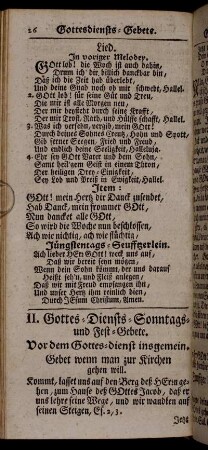 26 Gottesdiensts-Gebete.
Lied.
In voriger Melodey.
GOtt lob! die Woch ist auch dahin,
Drum ich dir billich danckbar bin,
Daß ich die Zeit hab überlebt,
Und deine Gnad noch ob mir schwebt, Hallel.
2. GOtt lob! für seine Güt und Treu,
Die mir ist alle Morgen neu,
Der mir beysteht durch seine Krafft,
Der mir Trost, Rath, und Hülffe schafft, Hallel.
3. Was ich versehn, vergib, mein GOtt!
Durch deines Sohnes Creutz, Hohn und Spott,
Gib ferner Seegen, Fried und Freud,
Und endlich deine Seeligkeit, Halleluja.
4. Ehr sey GOtt Vater und dem Sohn,
Samt heiligem Geist in einem Thron,
Der heiligen Drey-Einigkeit,
Sey Lob und Preiß in Ewigkeit, Hallel.
Item:
GOtt! mein Hertz dir Danck zusendet,
Hab Danck, mein frommer GOtt,
Nun dancket alle GOtt,
So wird die Woche nun beschlossen,
Ach wie nichtig, ach wie flüchtig,
Jüngstentags-Seufftzerlein.
Ach lieber HErr GOtt! weck uns auf,
Daß wir bereit seyn mögen,
Wenn dein Sohn kömmt, der uns darauf
Heißt seh'n, und Fleiß anlegen,
Daß wir mit Freud empfangen ihn,
und unser Hertz ihm reinlich dien,
Durch JEsum Christum, Amen.
II. Gottes-Diensts-Sonntags-
und Fest-Gebete.
Vor dem Gottes-dienst insgemein.
Gebet wenn man zur Kirchen
gehen will.
Kommt, lasset uns auf den Berg deß HErrn ge-
hen, zum Hause deß GOttes Jacob, daß er
uns lehre seine Wege, und wir wandeln auf
seinen Steigen, Es. 2, 3.